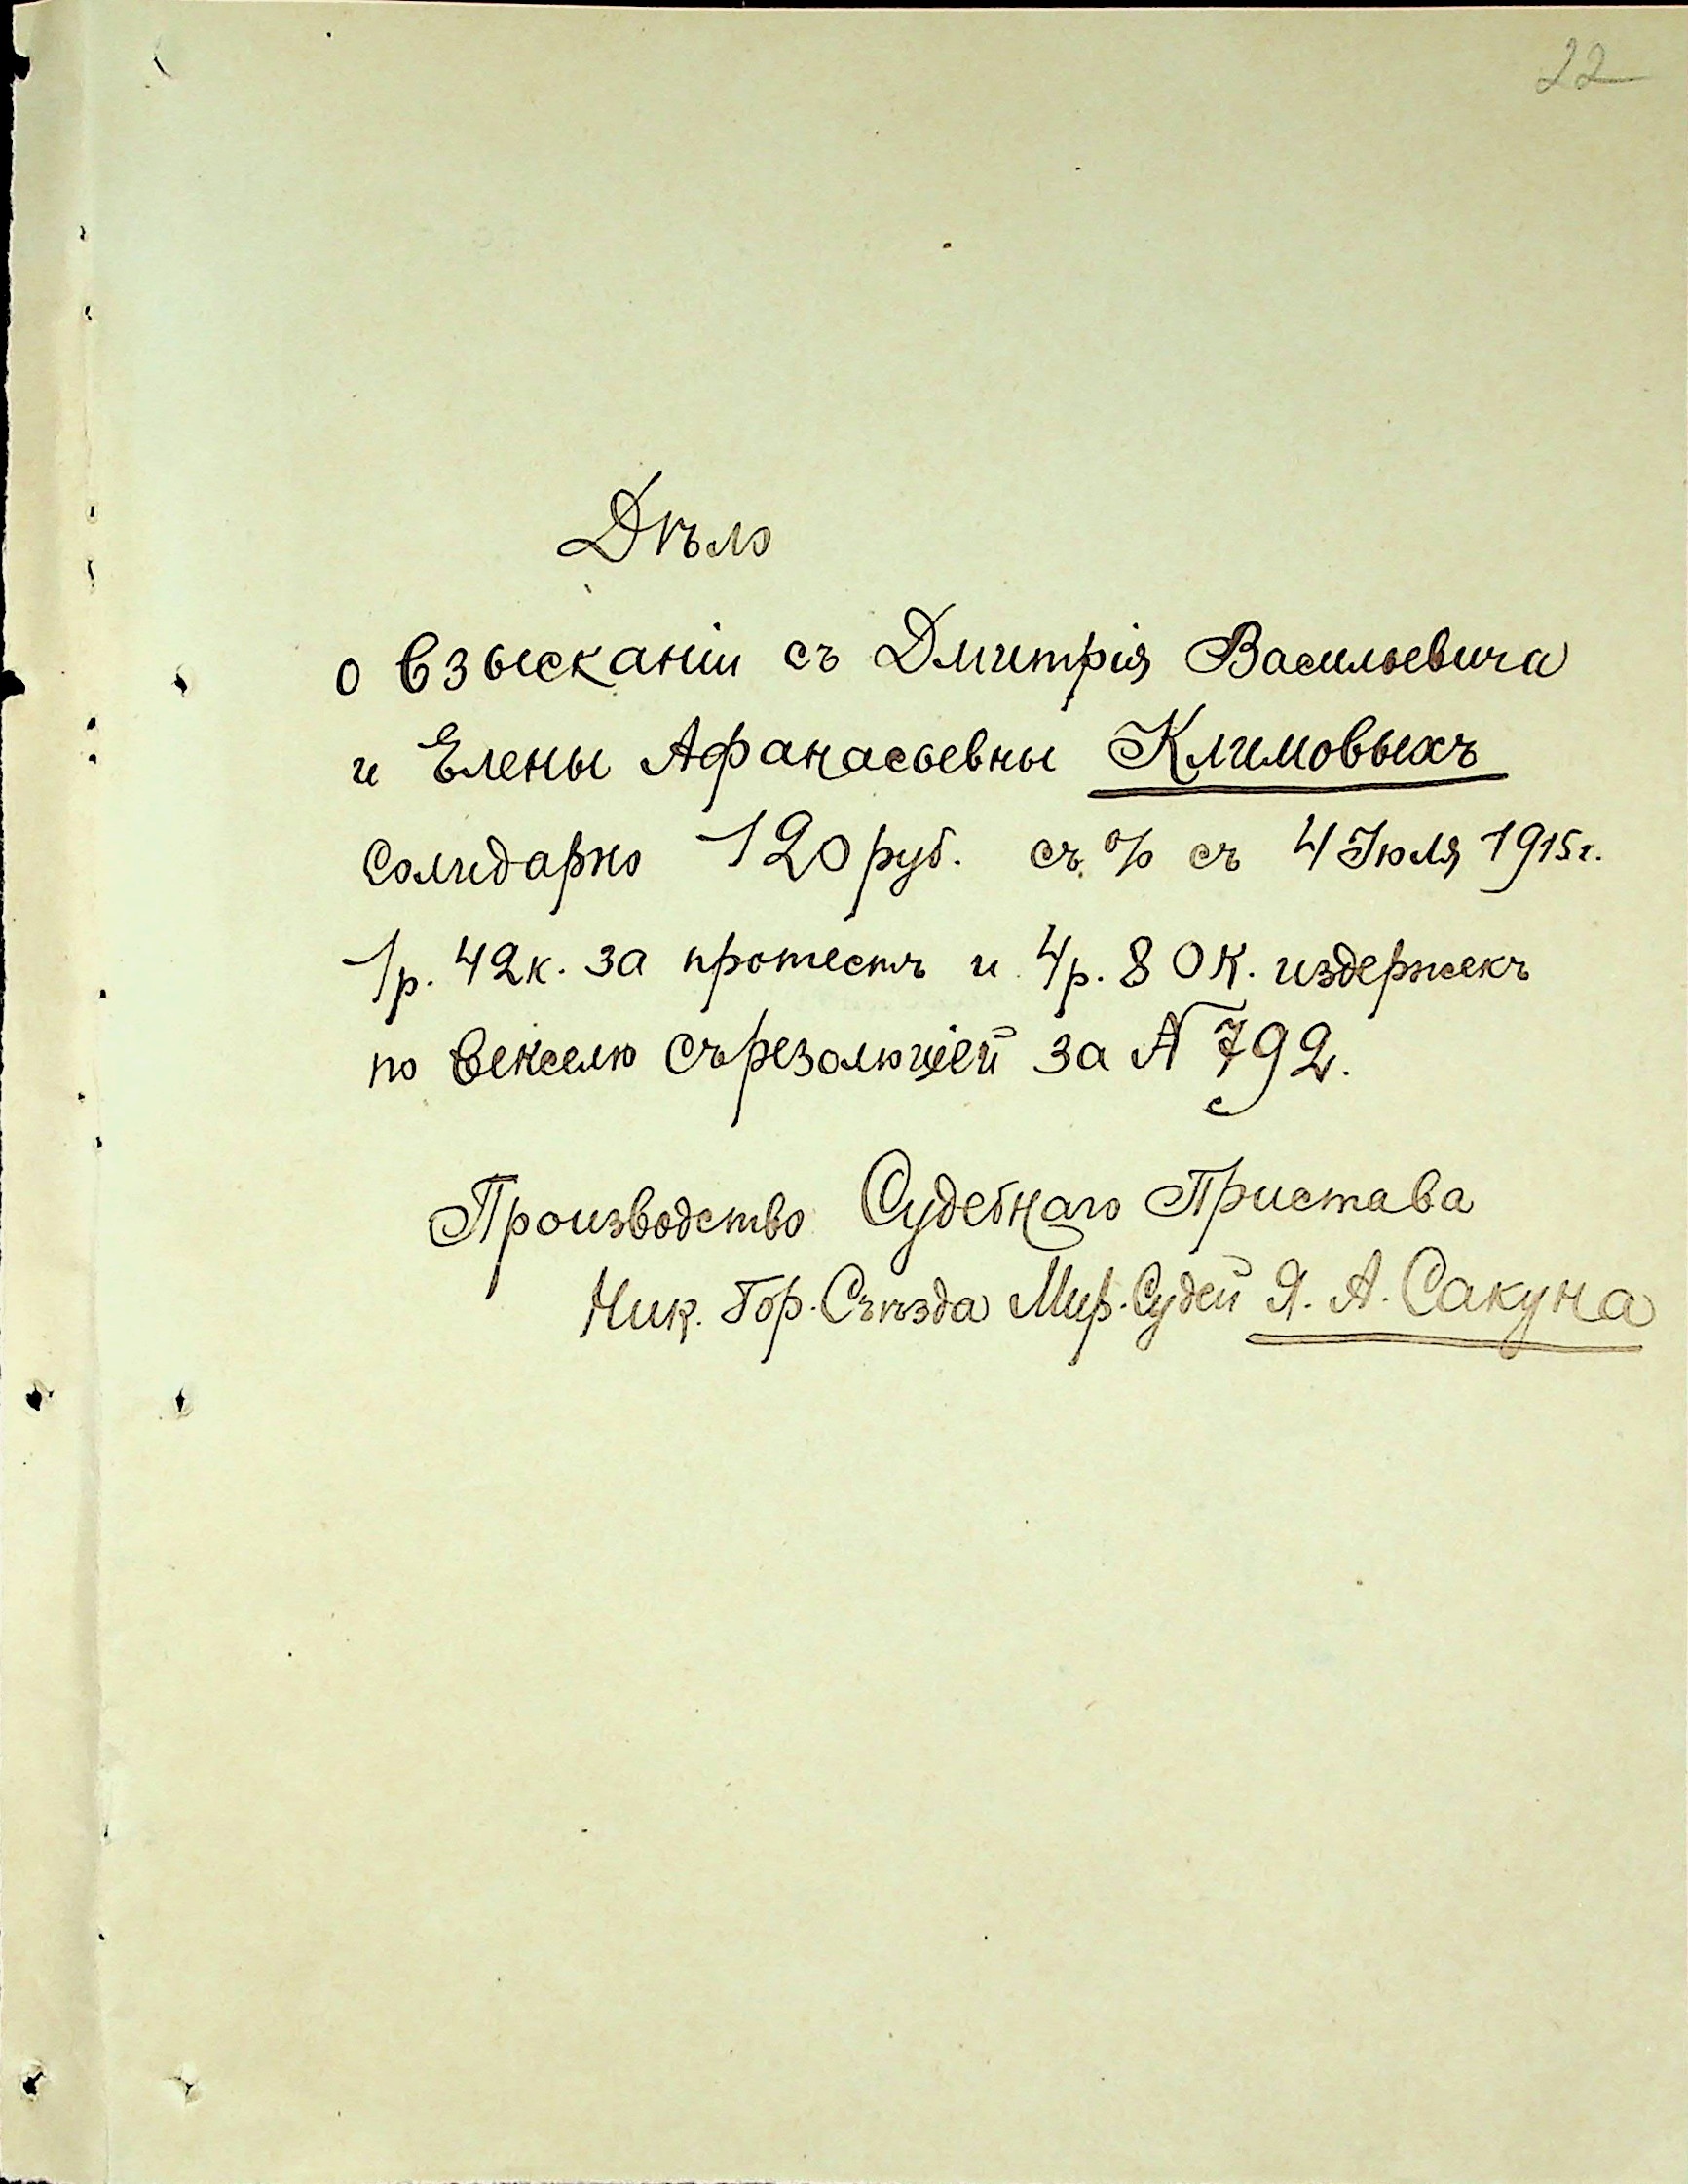 22
Дѣло
о взысканіи съ Дмитрія Васильевича
и Елены Афанасьевны Климовыхъ
солидарно 120 руб. съ % съ 4 Іюля 1915 г.
1 р. 42 к. за протестъ и 4 р. 80 к. издержекъ
по векселю съ резолюціей за № 792.
Производство Судебнаго Пристава
Ник. Гор. Съѣзда Мир. Судей Я. А. Сакуна